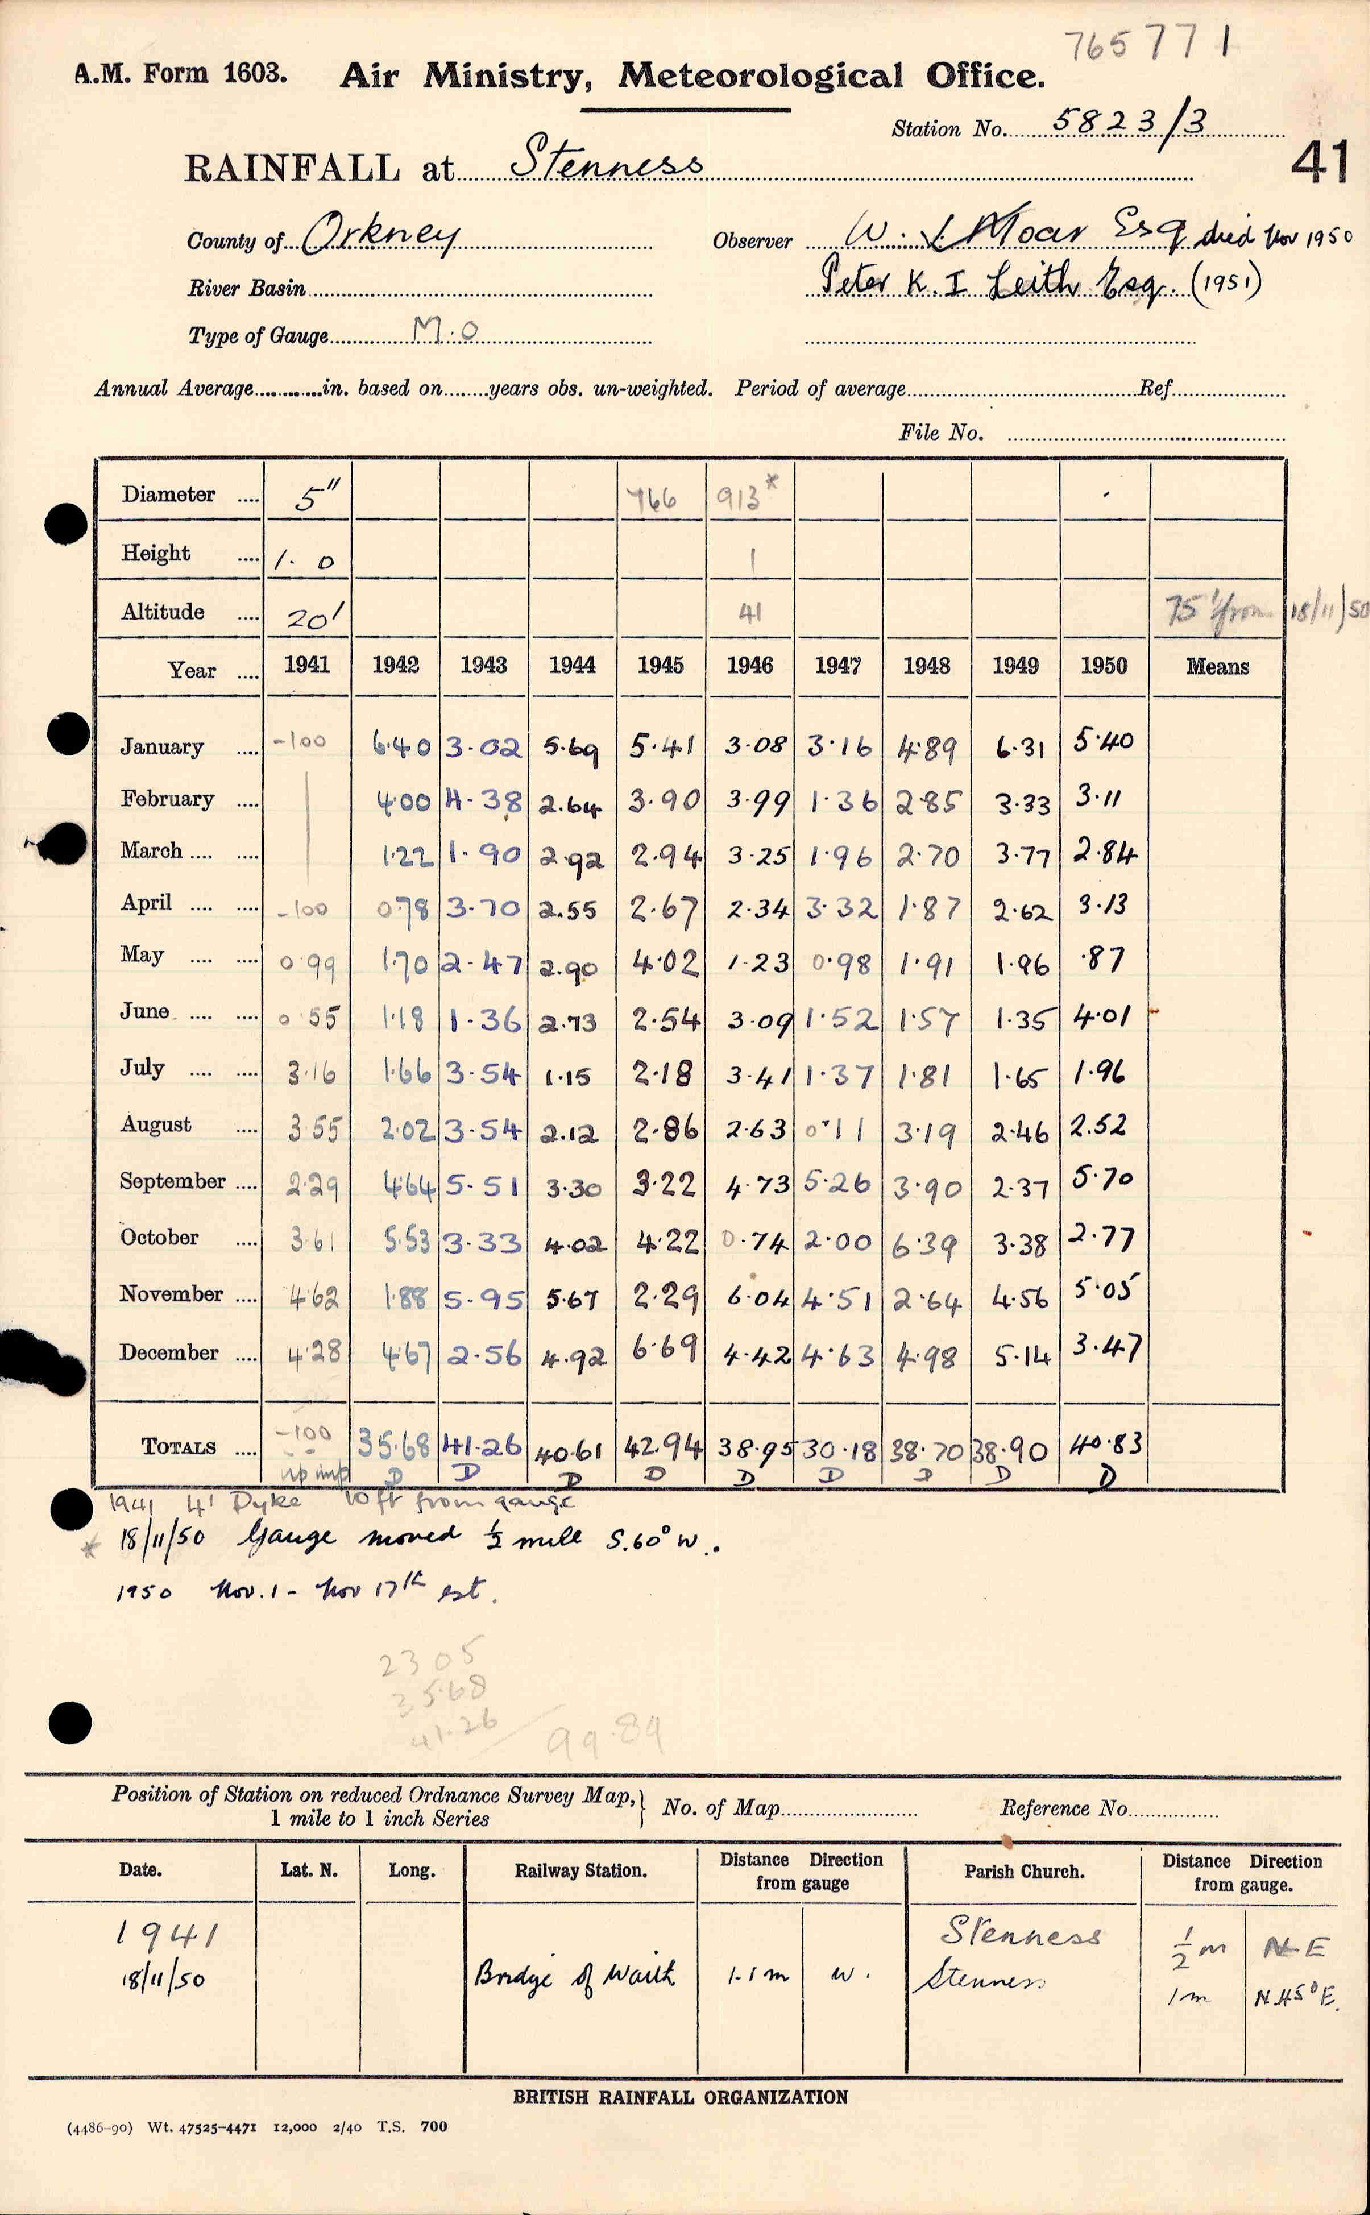 765771
A.M. Form 1603. Air Ministry, Meteorological Office.
Station No. 5823/3
41
RAINFALL at Stenness
County of Orkney Observer W. Moar Esq died Nov 1950
River Basin Peter K. I Leith Esq. (1951)
Type of Gauge M.O
Annual Average in. based on years obs. un-weighted. Period of average Ref
File No.
Diameter 5" 766 913*
Height 1. 0 1
Altitude 20' 41 75' from 18/11/50
Year 1941 1942 1943 1944 1945 1946 1947 1948 1949 1950 Means
January -100 6.40 3.02 5.69 5.41 3.08 3.16 4.89 6.31 5.40
February 4.00 4.38 2.64 3.90 3.99 1.36 2.85 3.33 3.11
March 1.22 1.90 2.92 2.94 3.25 1.96 2.70 3.77 2.84
April -100 0.78 3.70 2.55 2.67 2.34 3.32 1.87 2.62 3.13
May 0.99 1.70 2.47 2.90 4.02 1.23 0.98 1.91 1.96 .87
June 0.55 1.18 1.36 2.73 2.54 3.09 1.52 1.57 1.35 4.01
July 3.16 1.66 3.54 1.15 2.18 3.41 1.37 1.81 1.65 1.96
August 3.55 2.02 3.54 2.12 2.86 2.63 0.11 3.19 2.46 2.52
September 2.29 4.64 5.51 3.30 3.22 4.73 5.26 3.90 2.37 5.70
October 3.61 5.53 3.33 4.02 4.22 0.74 2.00 6.39 3.38 2.77
November 4.62 1.88 5.95 5.67 2.29 6.04 4.51 2.64 4.56 5.05
December 4.28 4.67 2.56 4.92 6.69 4.42 4.63 4.98 5.14 3.47
TOTALS -100 35.68 41.26 40.61 42.94 38.95 30.18 38.70 38.90 40.83
D D D D D D D D D
1941 4' Dyke 10ft from gauge
* 18/11/50 Gauge moved ½ mile S.60° W.
1950 Nov. 1 - Nov 17th est.
23 05
35.68
41.26 99.89
Position of Station on reduced Ordnance Survey Map, 1 mile to 1 inch Series } No. of Map Reference No.
Date. Lat. N. Long. Railway Station. Distance Direction from gauge Parish Church. Distance Direction from gauge.
1941 Stenness ½ m N-E
18/11/50 Bridge of Waith 1.1 m W. Stenness 1 m N.45°E.
BRITISH RAINFALL ORGANIZATION
(4486-90) Wt. 47525-4471 12,000 2/40 T.S. 700